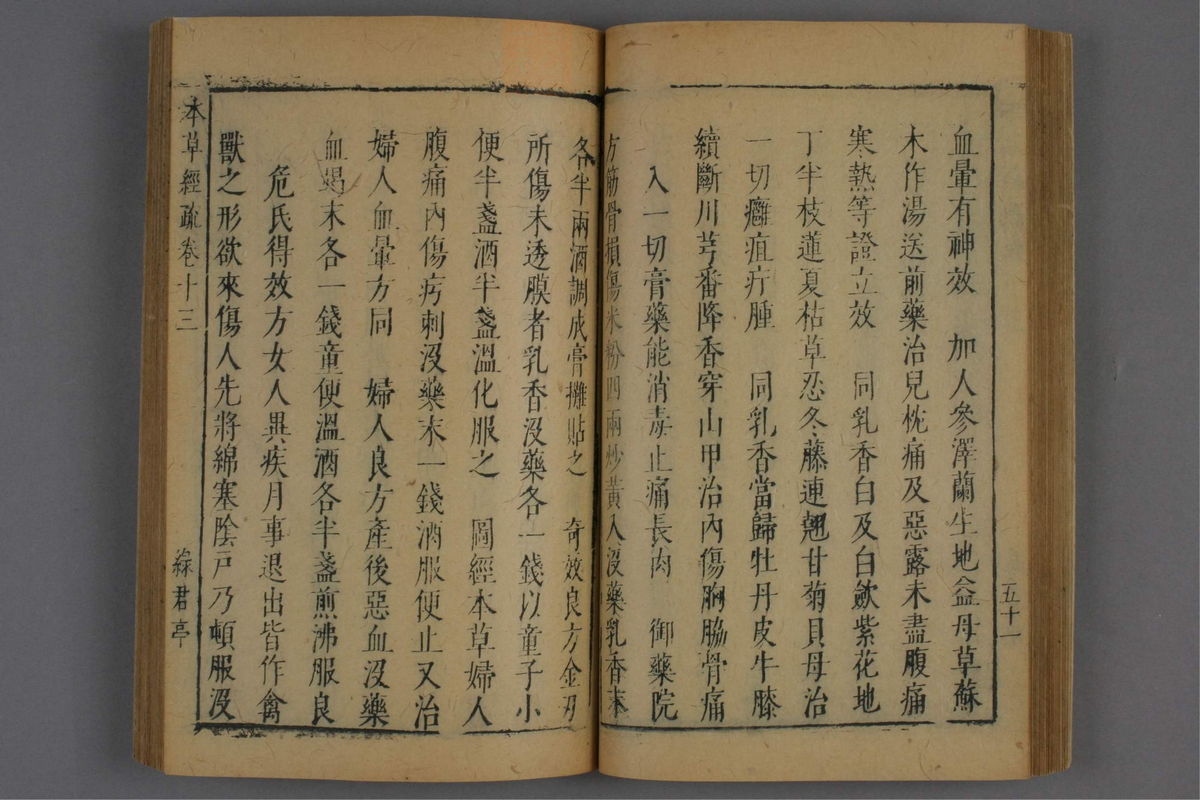 血暈有神效　加人參澤蘭生地益母草蘇
木作湯送前藥治兒枕痛及惡露未盡腹痛
寒熱等證立效　同乳香白及白歛紫花地
丁半枝蓮夏枯草忍冬藤連翹甘菊貝母治
一切癰疽疔腫　同乳香當歸牡丹皮牛膝
續斷川芎番降香穿山甲治內傷胸脇骨痛
入一切膏藥能消毒止痛長肉　御藥院
方筋骨損傷米粉四兩炒黃入沒藥乳香末
五十一
各半兩酒調成膏攤貼之　奇效良方金刃
所傷未透膜者乳香沒藥各一錢以童子小
便半盞酒半盞溫化服之　圖經本草婦人
腹痛內傷㽲刺沒藥末一錢酒服便止又治
婦人血暈方同　婦人良方產後惡血沒藥
血竭末各一錢童便溫酒各半盞煎沸服良
危氏得效方女人異疾月事退出皆作禽
獸之形欲來傷人先將綿塞陰戶乃頓服沒
本草經疏卷十三
綠君亭